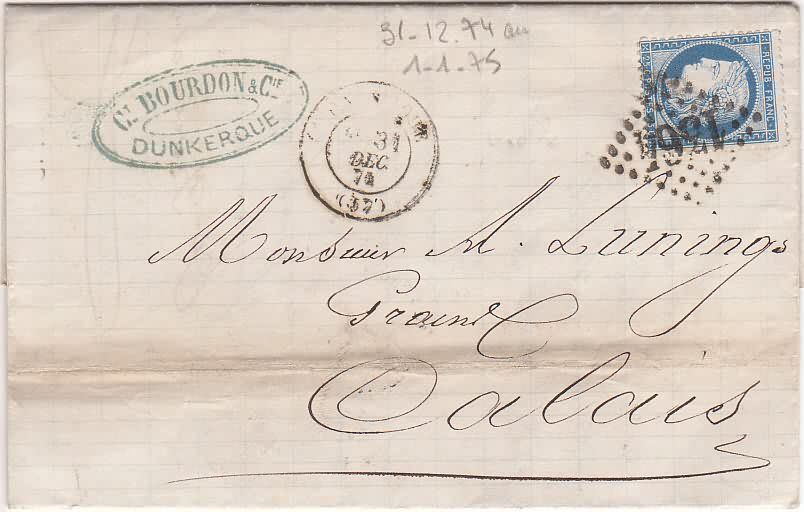 31-12.74 au
1-1-75
Ct. BOURDON & Cie
DUNKERQUE
REPUB. FRANC.
31
DEC.
74
(57)
1364
Monsieur A. Lunings
Calais